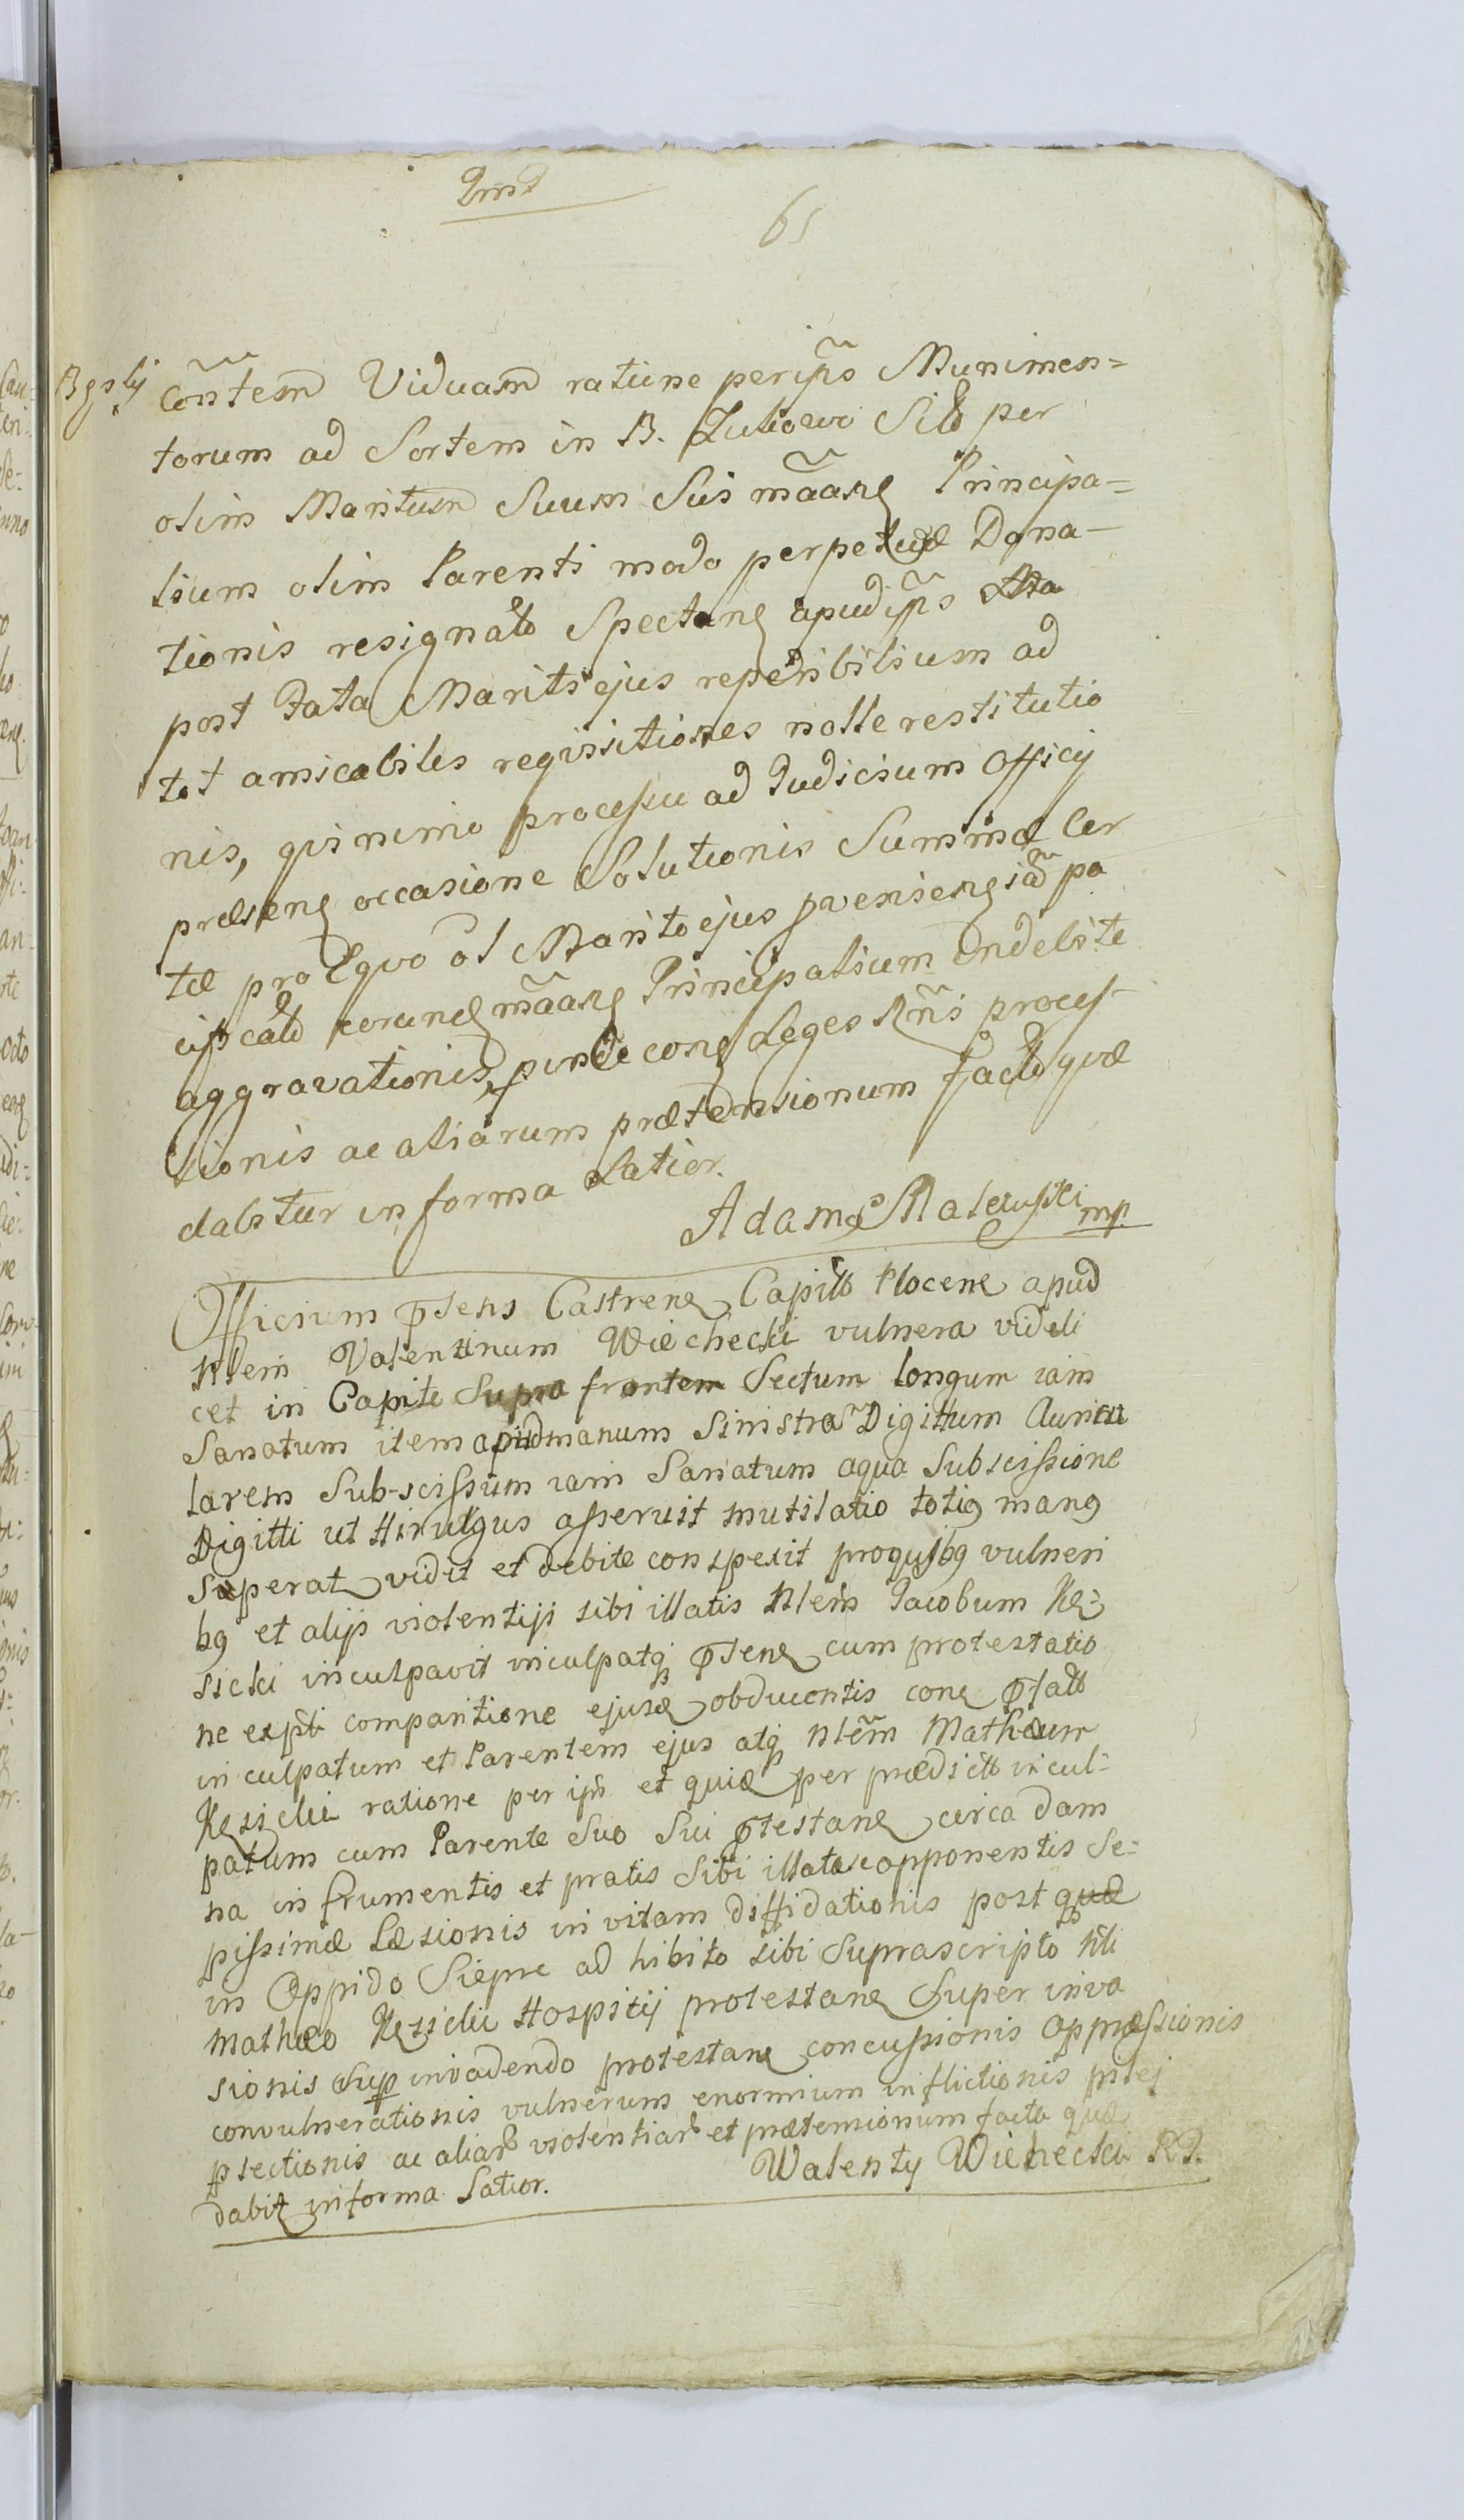 65
contem Viduam ratione per ips Munimen=
torum ad Sortem in B. Zukowo Sibi per
olim Maritum Suum Sui mãare Principa=
lium olim Parenti modo perpetuæ Dona-
tionis resignato Spectane apud ips
post Fata Mariti ejus reperibilium ad
tot amicabiles reqvisitiones nolle restitutio
nis, qvinimo processu ad Judicium Officij
præsene occasione Solutionis Summæ Cer
tæ pro Eqvo ol Marito ejus
eorune mãare Principalium Indebite
aggravationis, pinde cone Leges Rñi proces-
sionis ac aliarum prætensionum facto qvæ
dabitur in forma Latior.
Adam Malewski mp.
Officium ptens Castrene Capitt Plocene apud
Nlem Valentinum Wiechecki vulnera videli
cet in Capite Supra frontem Sectum longum iam
Sanatum item apud manum Sinistra Digittum Auricu
larem Sub-scissum iam Sanatum aqua Subscissione
Digitti ut Hirulgus asseruit mutilatio totig mang
superat vidit et debite conspexit pro quibg vulneri
bg et alijs violentijs sibi illatis Nlem Jacobum Kę-
sicki inculpavit inculpatq ptene cum protestatio
ne expti comparitione ejusde obducentis cone ptatt
inculpatum et Parentem ejus atq Nlem Mathæum
Kęsicki ratione per ips et quidē per prædictt incul-
patum cum Parente Suo Sui ptestane circa dam
na in frumentis et pratis Sibi illata se opponentis Se-
pissimæ Læsionis in vitam diffidationis post quæ
in Oppido Siepre ad hibito sibi Suprascripto Nli
Mathæo Kęsicki Hospitij protestane Super inva
sionis Sup invadendo protestane concussionis oppressionis
convulnerationis vulnerum enormium inflictionis pilej
psectionis ac aliar violentiar et prætensionum facto quæ
dabit in forma Latior.
Walenty Wiechecki